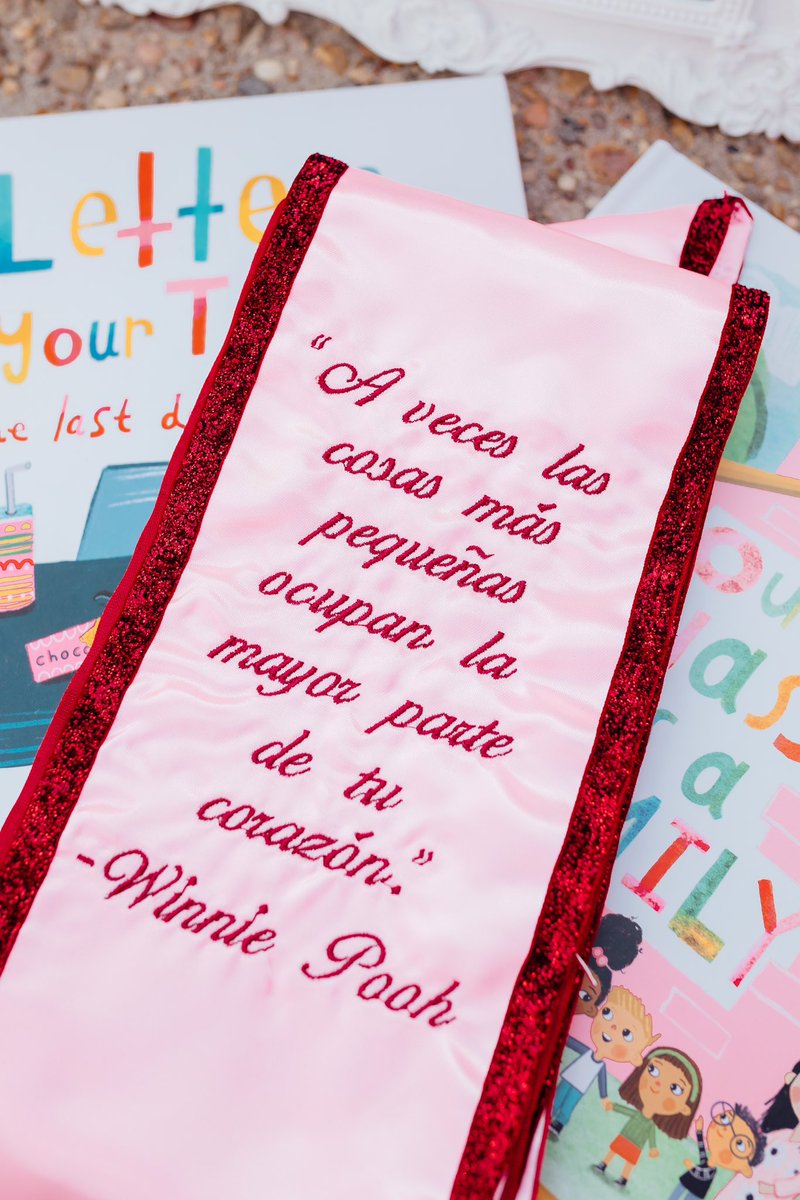 Lette
your T
last
choc
"A veces las
cosas más
pequeñas
ocupan la
mayor parte
de tu
corazón."
-Winnie Pooh
Our
Class
is a
FAMILY